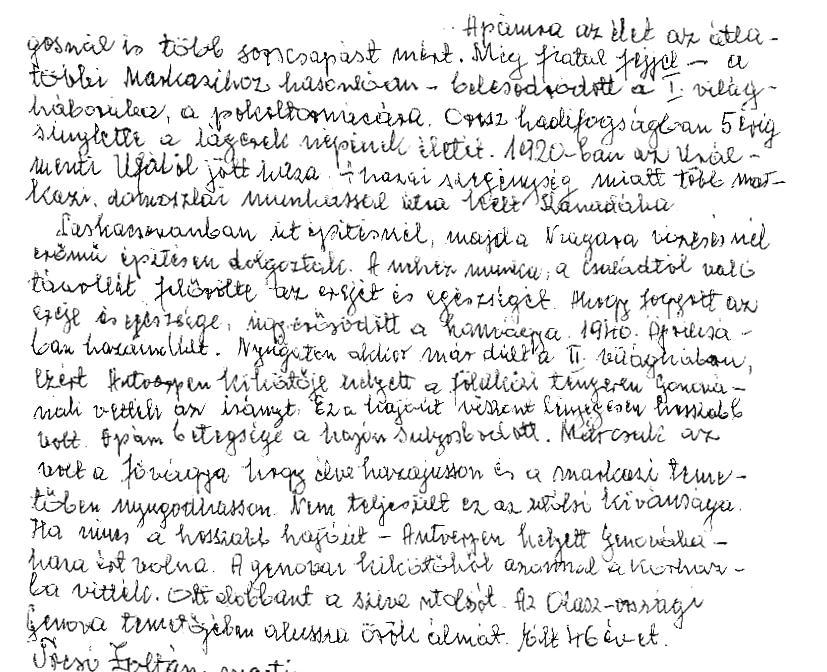 Apámra az élet az átla-
gosnál is több sorscsapást mért. Még fiatal fejjel – a
többi Markazihoz hasonlóan – belesodródott a I. világ-
háborúba, a pokol tornácára. Orosz hadifogságban 5 évig
sinylette a lágerek népének életét. 1920-ban az Urál-
menti Ufából jött haza. A hazai szegénység miatt több mar-
kazi, domoszlai munkással útra kelt Kanadába
Saskacsevanban út építésnél, majd a Niagara vízesésnél
erőmű építésen dolgoztak. A nehéz munka, a családtól való
távollét felőrölte az erejét és egészségét. Ahogy fogyott az
ereje és egészsége, úgy erősödött a honvágya. 1940. Áprilisá-
ban hazaindult. Nyugaton akkor már dúlt a II. világháború,
ezért Antverpen kikötője helyett a földközi tengeren Genová-
nak vették az irányt. Ez a hajóút viszont lényegesen hosszabb
volt. Apám betegsége a hajón súlyosbodott. Már csak az
volt a fővágya hogy élve hazajusson és a markazi teme-
tőben nyugodhasson. Nem teljesült ez az utolsó kívánsága.
Ha nincs a hosszabb hajóút – Antverpen helyett Genovába –
haza ért volna. A genovai kikötőből azonnal a kórház-
ba vitték. Ott dobbant a szíve utolsót. Az Olasz-országi
Genova temetőjében alussza örök álmát. Élt 46 évet.
Zoltán